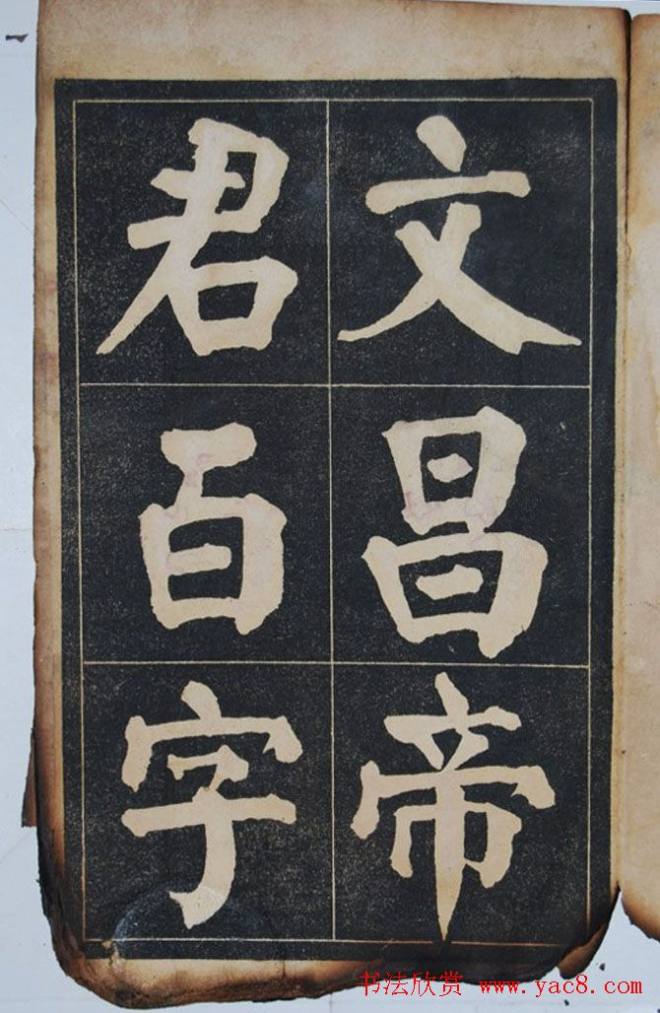 文昌帝
君百字
书法欣赏 www.yac8.com